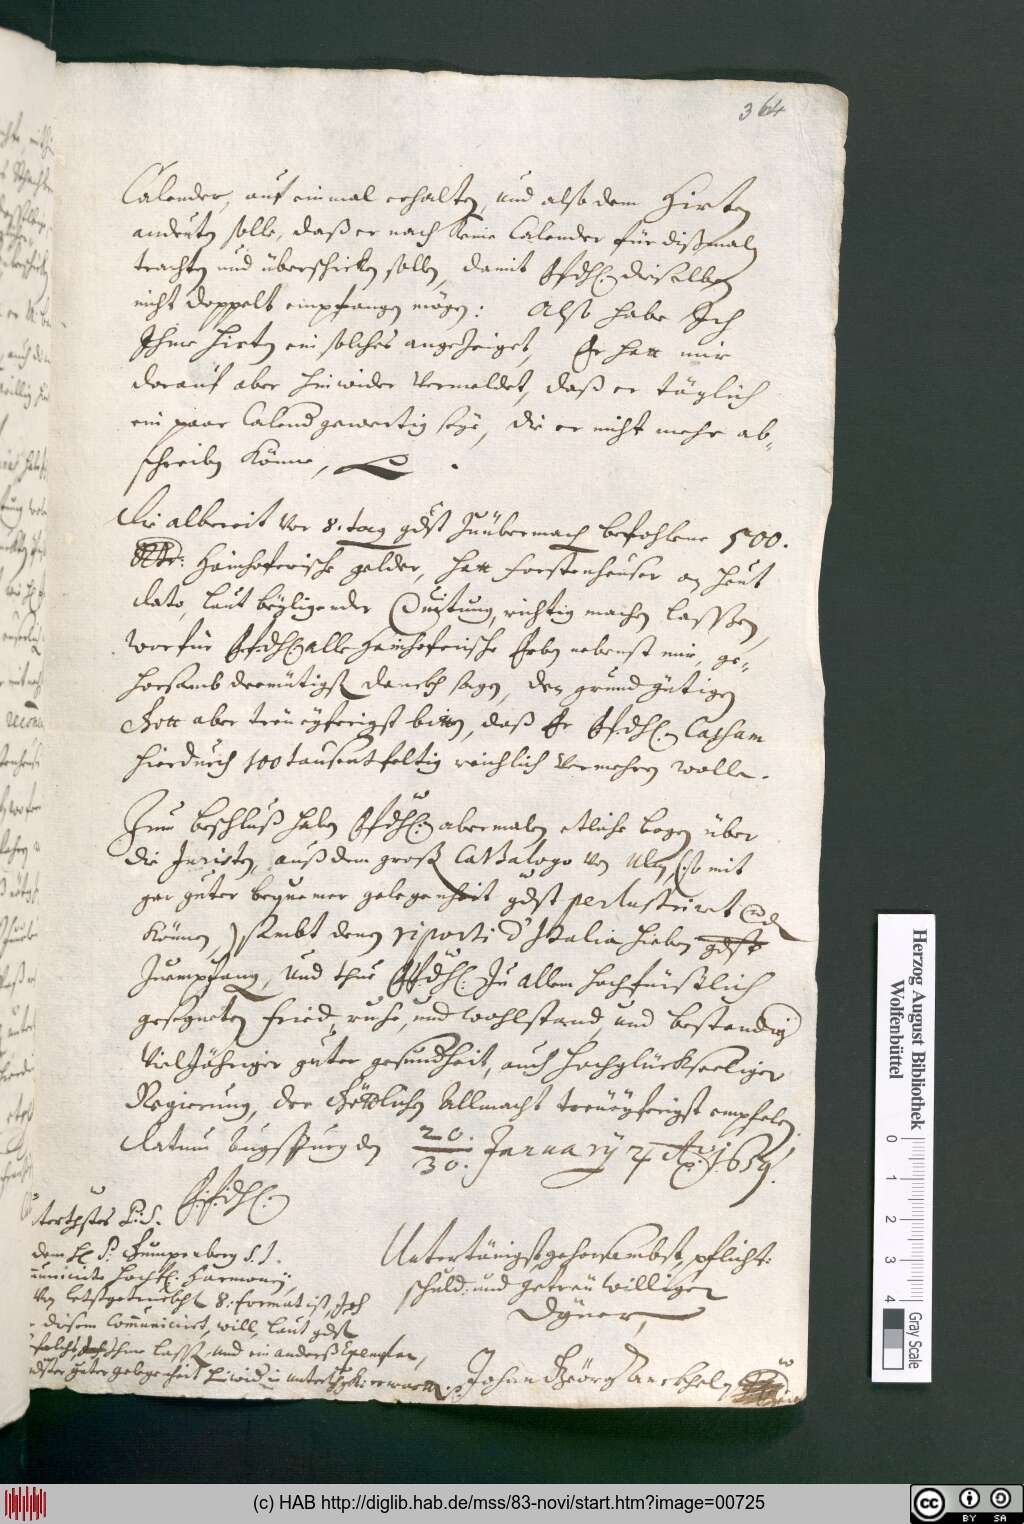 364
Calender, auf einmal erhalten, und also dem Hirten
andeuten solle, daß er nach keine Calender für dißmaln
trachten und überschicken sollen, damit Ffdhl: dieselben
nicht doppelt empfangen mögen: Also habe Ich
Ihme Hirten ein solches angezeiget, Er hatt mir
darauf aber hinwider vermeldet, daß er täglich
ein paar Calend gewertig seye, die er nicht mehr ab-
schreiben könne,
Die albereit vor 8. tag gdst zuübermach befohlene 500.
Rtr: Hainhoferische gelder, hatt Forstenheuser an heut
dato, laut beyligender Quitung, richtig machen lassen,
worfür Ffdhl alle Hainhoferische Erben nebenst mir, ge-
horsamb demütigst danckh sagen, den grundgütigen
Gott aber treueyferigst bitten, daß Er Ffdhl: Cassam
hierdurch 100 tausentfeltig reichlich vermehren wolle.
Zum beschluß haben Ffdhl: abermalen etliche bogen über
die Juristen, auß dem groß Cathalogo von Ulm, (so mit
gar guter bequemer gelegenheit gdst perlustriret
können) sambt denen riporti d'Italia hieben gdst
Zuempfang, und thue Ffdhl: Zu allem hochfürstlich
gesegneten fried, ruhe, und wohlstand, und bestendig
vieljähriger guter gesundheit, auch hochglückseeliger
Regierung, der Göttlichen Allmacht treueyferigst empfelen.
Datum Augspurg den 20./30. January Ao: 1659.
F: F: dhl:
Untertänigst, gehorsambst, pflicht-
schuld- und getreu williger
Dyener,
Johann Geörg Anckheln
P: S.
dem H P: Gumpenberg S. J.
Harmoney,
von 8: format ist, Ich
diesem Communicirt, will, laut gdst
Ihme lasst, und ein anders Exemplar,
guter gelegenheit
Herzog August Bibliothek
Wolfenbüttel
0 1 2 3 4
Gray Scale
(c) HAB http://diglib.hab.de/mss/83-novi/start.htm?image=00725
cc BY SA